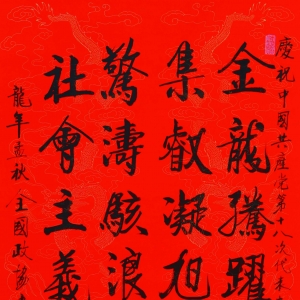 慶祝中國共產党第十八次代表
金龍騰躍
集叡凝旭
驚濤駭浪
社會主義
龍年孟秋全國政協